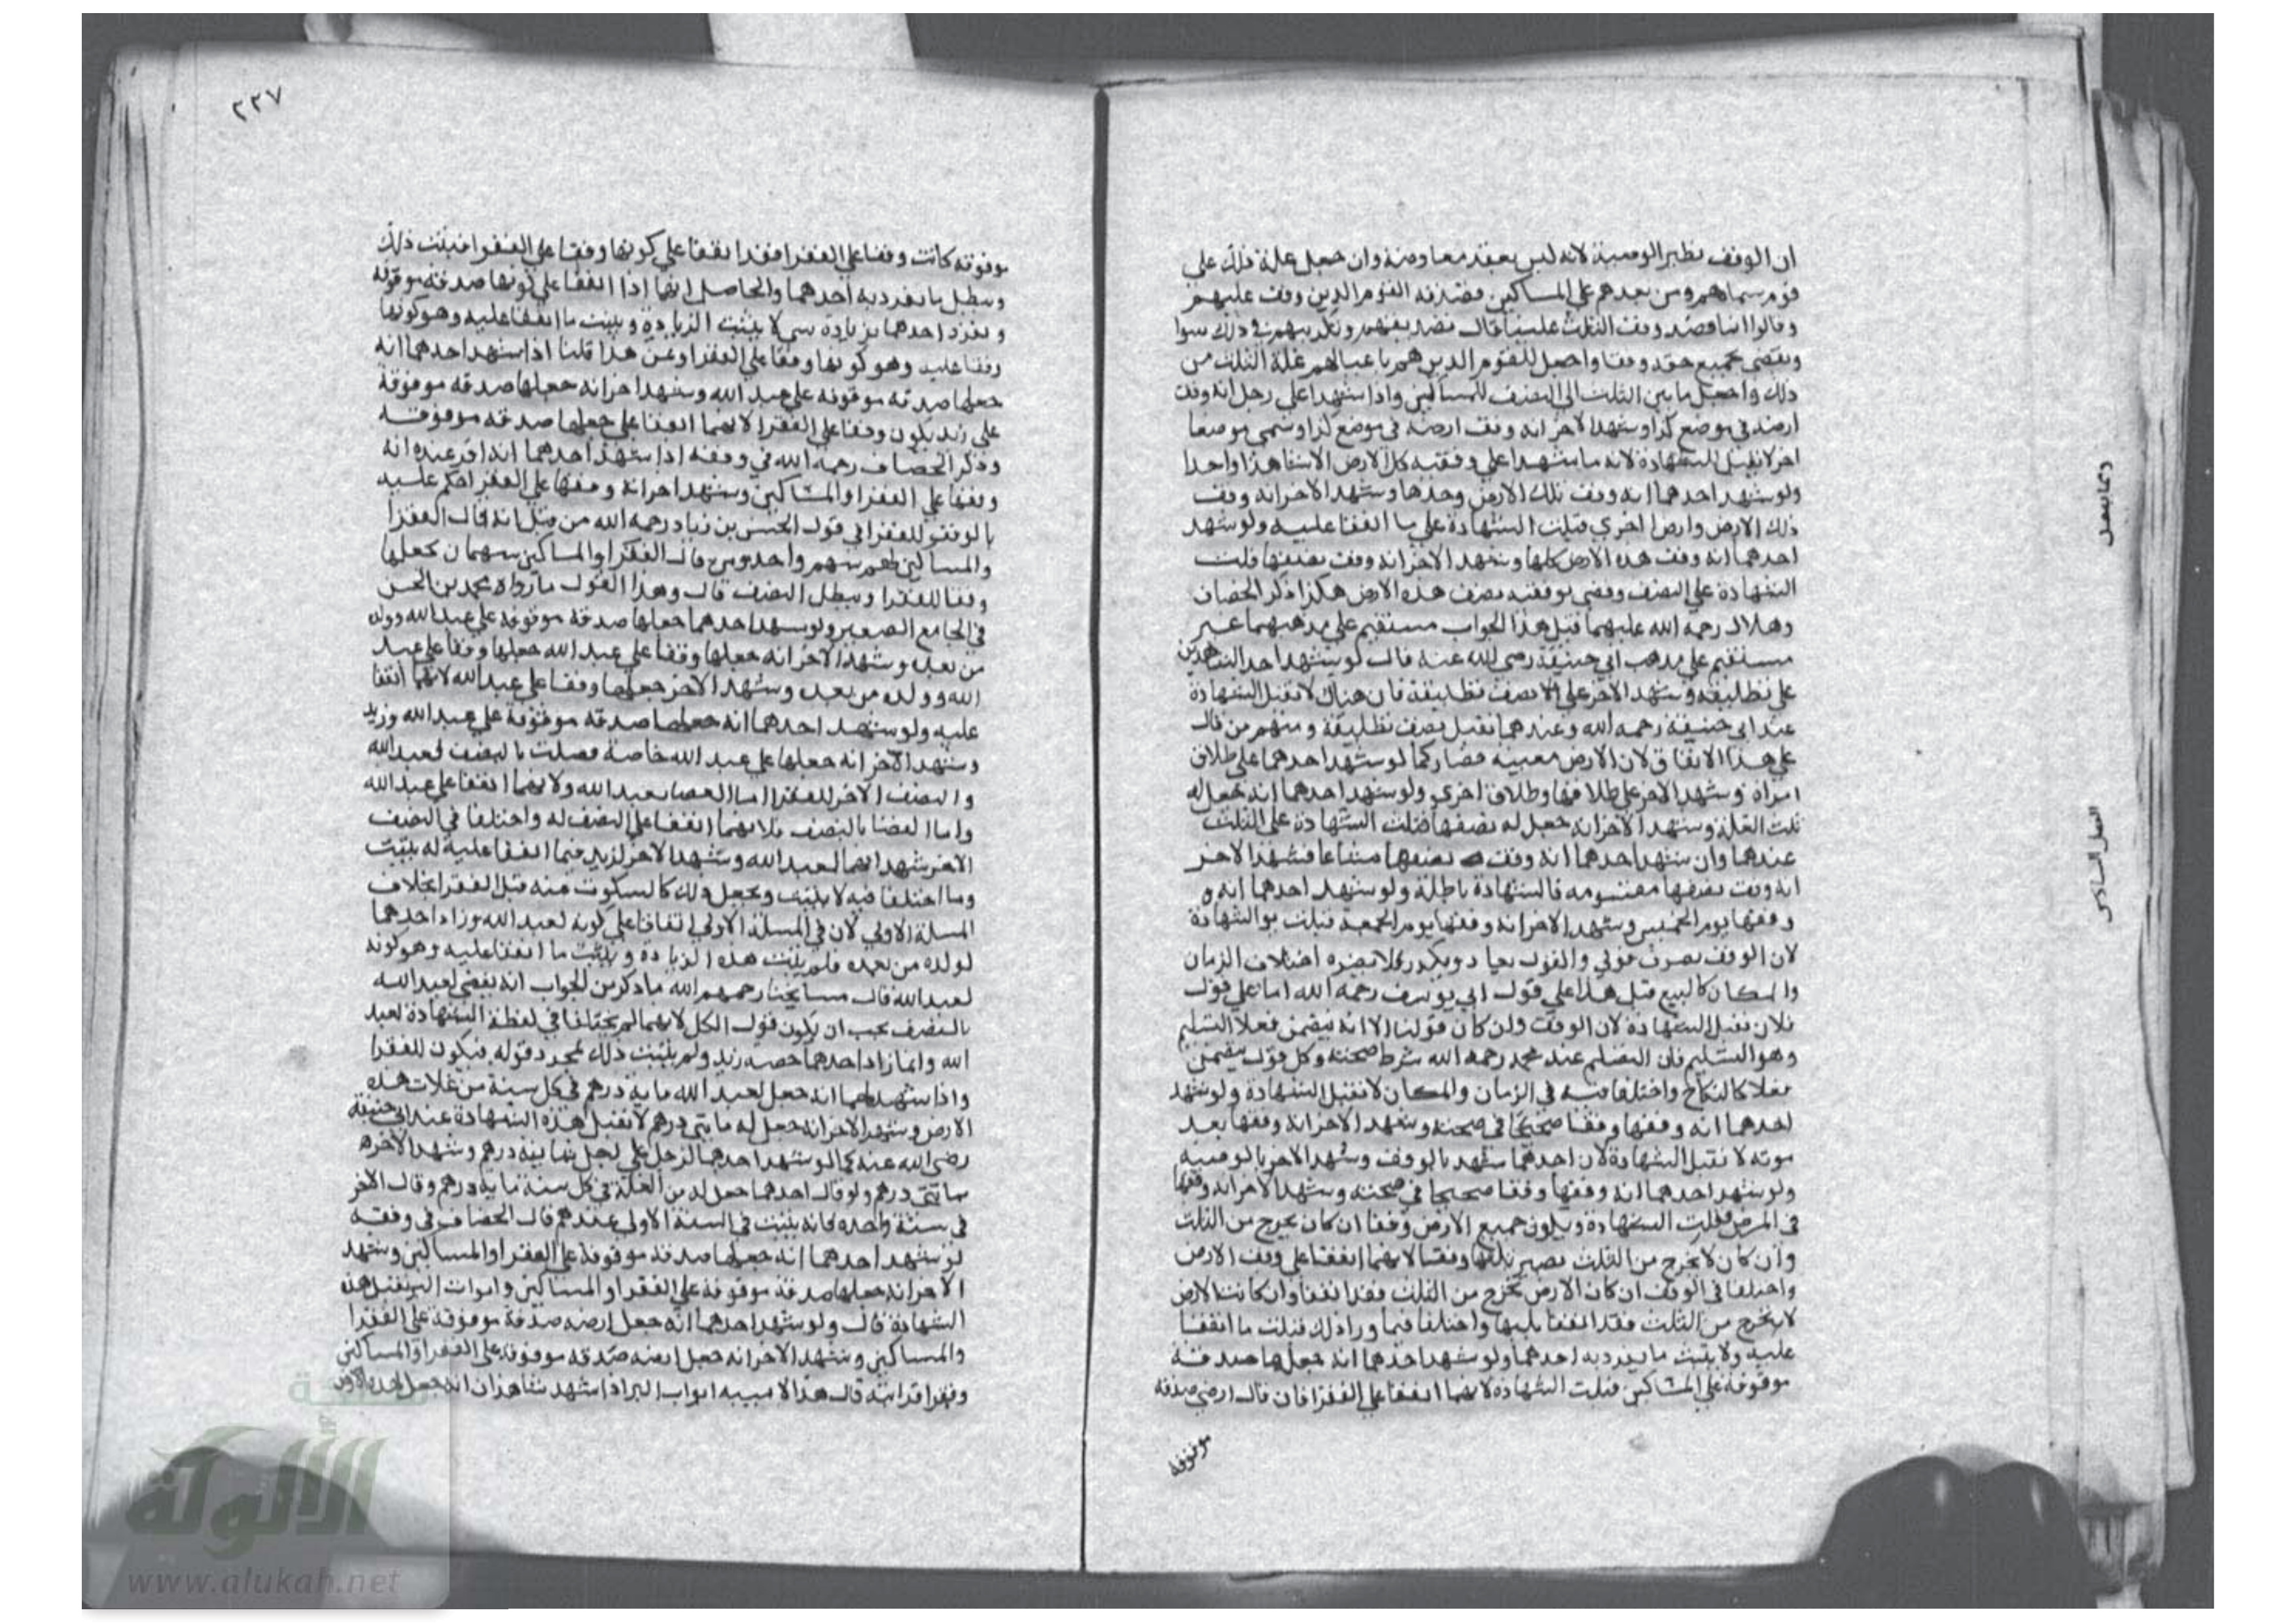 ان الوقف نظير الوصية لانه ليس بعقد معاوضة وان جعل غلة ذلك على
قوم سماهم ومن بعدهم على المساكين فصدقه القوم الذين وقف عليهم
وقالوا انما قصد وقف الثلث علينا قال تصديقهم وتكذيبهم في ذلك سوا
ويقضى بجميع حقه وقفا واجعل للقوم الذين هم باعيانهم غلة الثلث من
ذلك واجعل ما بين الثلث الى النصف للمساكين واذا شهدا على رجل انه وقف
ارضه في موضع كذا وشهد الاخر انه وقف ارضه في موضع كذا وسمى موضعا
اخر لا تقبل الشهادة لانه ما شهدا على وقفية كل الارض الا شاهدا واحدا
ولو شهد احدهما انه وقف تلك الارض وحدها وشهد الاخر انه وقف
ذلك الارض وارضا اخرى قبلت الشهادة على ما اتفقا عليه ولو شهد
احدهما انه وقف هذه الارض كلها وشهد الاخر انه وقف نصفها قبلت
الشهادة على النصف وقضى بوقفية نصف هذه الارض هكذا ذكر الخصاف
وهلال رحمة الله عليهما قيل هذا الجواب مستقيم على مذهبهما غير
مستقيم على مذهب ابي حنيفة رضي الله عنه قال لو شهد احد الشاهدين
على تطليقة وشهد الاخر على نصف تطليقة فان هناك لا تقبل الشهادة
عند ابي حنيفة رحمه الله وعندهما تقبل نصف تطليقة ومنهم من قال
على هذا الاتفاق لان الارض معينة فصار كما لو شهد احدهما على طلاق
امراة وشهد الاخر على طلاقها وطلاق اخرى ولو شهد احدهما انه جعل له
ثلث الغلة وشهد الاخر انه جعل له نصفها قبلت الشهادة على الثلث
عندهما وان شهد احدهما انه وقف نصفها مشاعا وشهد الاخر
انه وقف نصفها مقسومه فالشهادة باطلة ولو شهد احدهما انه و
وقفها يوم الخميس وشهد الاخر انه وقفها يوم الجمعة قبلت الشهادة
لان الوقف تصرف قولي والقول يعاد ويكرر فلا يضره اختلاف الزمان
والمكان كالبيع قيل هذا على قول ابي يوسف رحمه الله اما على قول
فلان تقبل الشهادة لان الوقف وان كان قولنا الا انه يتضمن فعلا التسليم
وهو التسليم فان التسليم عند محمد رحمه الله شرط صحته وكل قول يتضمن
فعلا كالنكاح واختلفا فيه في الزمان والمكان لا تقبل الشهادة ولو شهد
احدهما انه وقفها وقفا صحيحا في صحته وشهد الاخر انه وقفها بعد
موته لا تقبل الشهادة لان احدهما شهد بالوقف وشهد الاخر بالوصية
ولو شهد احدهما انه وقفها وقفا صحيحا في صحته وشهد الاخر انه وقفها
في المرض قبلت الشهادة ويكون جميع الارض وقفا ان كان يخرج من الثلث
وان كان لا يخرج من الثلث يصير ثلثها وقفا لانهما اتفقا على وقف الارض
واختلفا في الوقف ان كان الارض تخرج من الثلث فقد اتفقا وان كانت الارض
لا تخرج من الثلث فقد اتفقا ثلثها واختلفا فيما ورا ذلك قبلت ما اتفقا
عليه ولا يثبت ما يفرد به احدهما ولو شهد احدهما انه جعلها صدقة
موقوفة على المساكين قبلت الشهادة لانهما اتفقا على الفقرا فان قال ارضي صدقه
موقوفة
وما يتصل
الفصل السادس
٢٢٧
موقوفه كانت وقفا على الفقرا فقد اتفقا على كونها وقفا على الفقرا فيثبت ذلك
ويبطل ما تفرد به احدهما والحاصل انهما اذا اتفقا على كونها صدقة موقوفة
وتفرد احدهما بزيادة شي لا يثبت الزيادة ويثبت ما اتفقا عليه وهو كونها
وقفا عليه وهو كونها وقفا على الفقرا وعن هذا قلنا اذا شهد احدهما انه
جعلها صدقه موقوفة على عبد الله وشهد اخر انه جعلها صدقه موقوفة
على زيد يكون وقفا على الفقرا لانهما اتفقا على جعلها صدقه موقوفة
وذكر الخصاف رحمه الله في وقفه اذا شهد احدهما انه اقر عنده انه
وقفها على الفقرا والمساكين وشهد اخر انه وقفها على الفقرا احكم عليه
بالوقف للفقرا في قول الحسن بن زياد رحمه الله من قبل انه قال الفقرا
والمساكين لهم سهم واحد ومن قال الفقرا والمساكين سهمان جعلها
وقفا للفقرا ويبطل النصف قال وهذا القول ما رواه محمد بن الحسن
في الجامع الصغير ولو شهد احدهما جعلها صدقة موقوفة على عبد الله وولده
من بعده وشهد الاخر انه جعلها وقفا على عبد الله جعلها وقفا على عبد
الله وولده من بعده وشهد الاخر جعلها وقفا على عبد الله لانهما اتفقا
عليه ولو شهد احدهما انه جعلها صدقه موقوفة على عبد الله وزيد
وشهد الاخر انه جعلها على عبد الله خاصة فصلت بالنصف لعبد الله
والنصف الاخر للفقرا اما القضا لعبد الله ولانهما اتفقا على عبد الله
واما القضا بالنصف فلانهما اتفقا على النصف له واختلفا في النصف
الاخر شهد انهما لعبد الله وشهد الاخر لزيد فيما اتفقا عليه له يثبت
وما اختلفا فيه لا يثبت ويجعل ذلك كالسكوت عنه قبل الفقرا بخلاف
المسلة الاولى لان في المسلة الاولى اتفاقا على كونه لعبد الله وزاد احدهما
لولده من بعده فلم يثبت هذه الزيادة ويثبت ما اتفقا عليه وهو كونه
لعبد الله قال مشايخنا رحمهم الله ما ذكر من الجواب انه يقضى لعبد الله
بالنصف يجب ان يكون قول الكل لانهما لم يختلفا في لفظة الشهادة لعبد
الله وانما زاد احدهما حصه زيد ولم يثبت ذلك بمجرد قوله فيكون للفقرا
واذا شهد احدهما انه جعل لعبد الله ماية درهم في كل سنة من غلات هذه
الارض وشهد الاخر انه جعل له مايتى درهم لا تقبل هذه الشهادة عند ابي حنيفة
رضي الله عنه كما لو شهد احدهما لرجل على رجل بثمانية درهم وشهد الاخر
بمايتى درهم ولو قال احدهما جعل له من الغلة في كل سنة ماية درهم وقال الاخر
في سنة واحده فانه يثبت في السنة الاولى عندهم قال الخصاف في وقفه
لو شهد احدهما انه جعلها صدقة موقوفة على الفقرا والمساكين وشهد
الاخر انه جعلها صدقة موقوفة على الفقرا والمساكين وابواب البر تقبل هذه
الشهادة قال ولو شهد احدهما انه جعل ارضه صدقة موقوفة على الفقرا
والمساكين وشهد الاخر انه جعل ارضه صدقه موقوفة على الفقرا والمساكين
وفقرا قرابته قال هذا لا يشبه ابواب البر اذا شهد شاهدان انه جعل
الألوكة
www.alukah.net